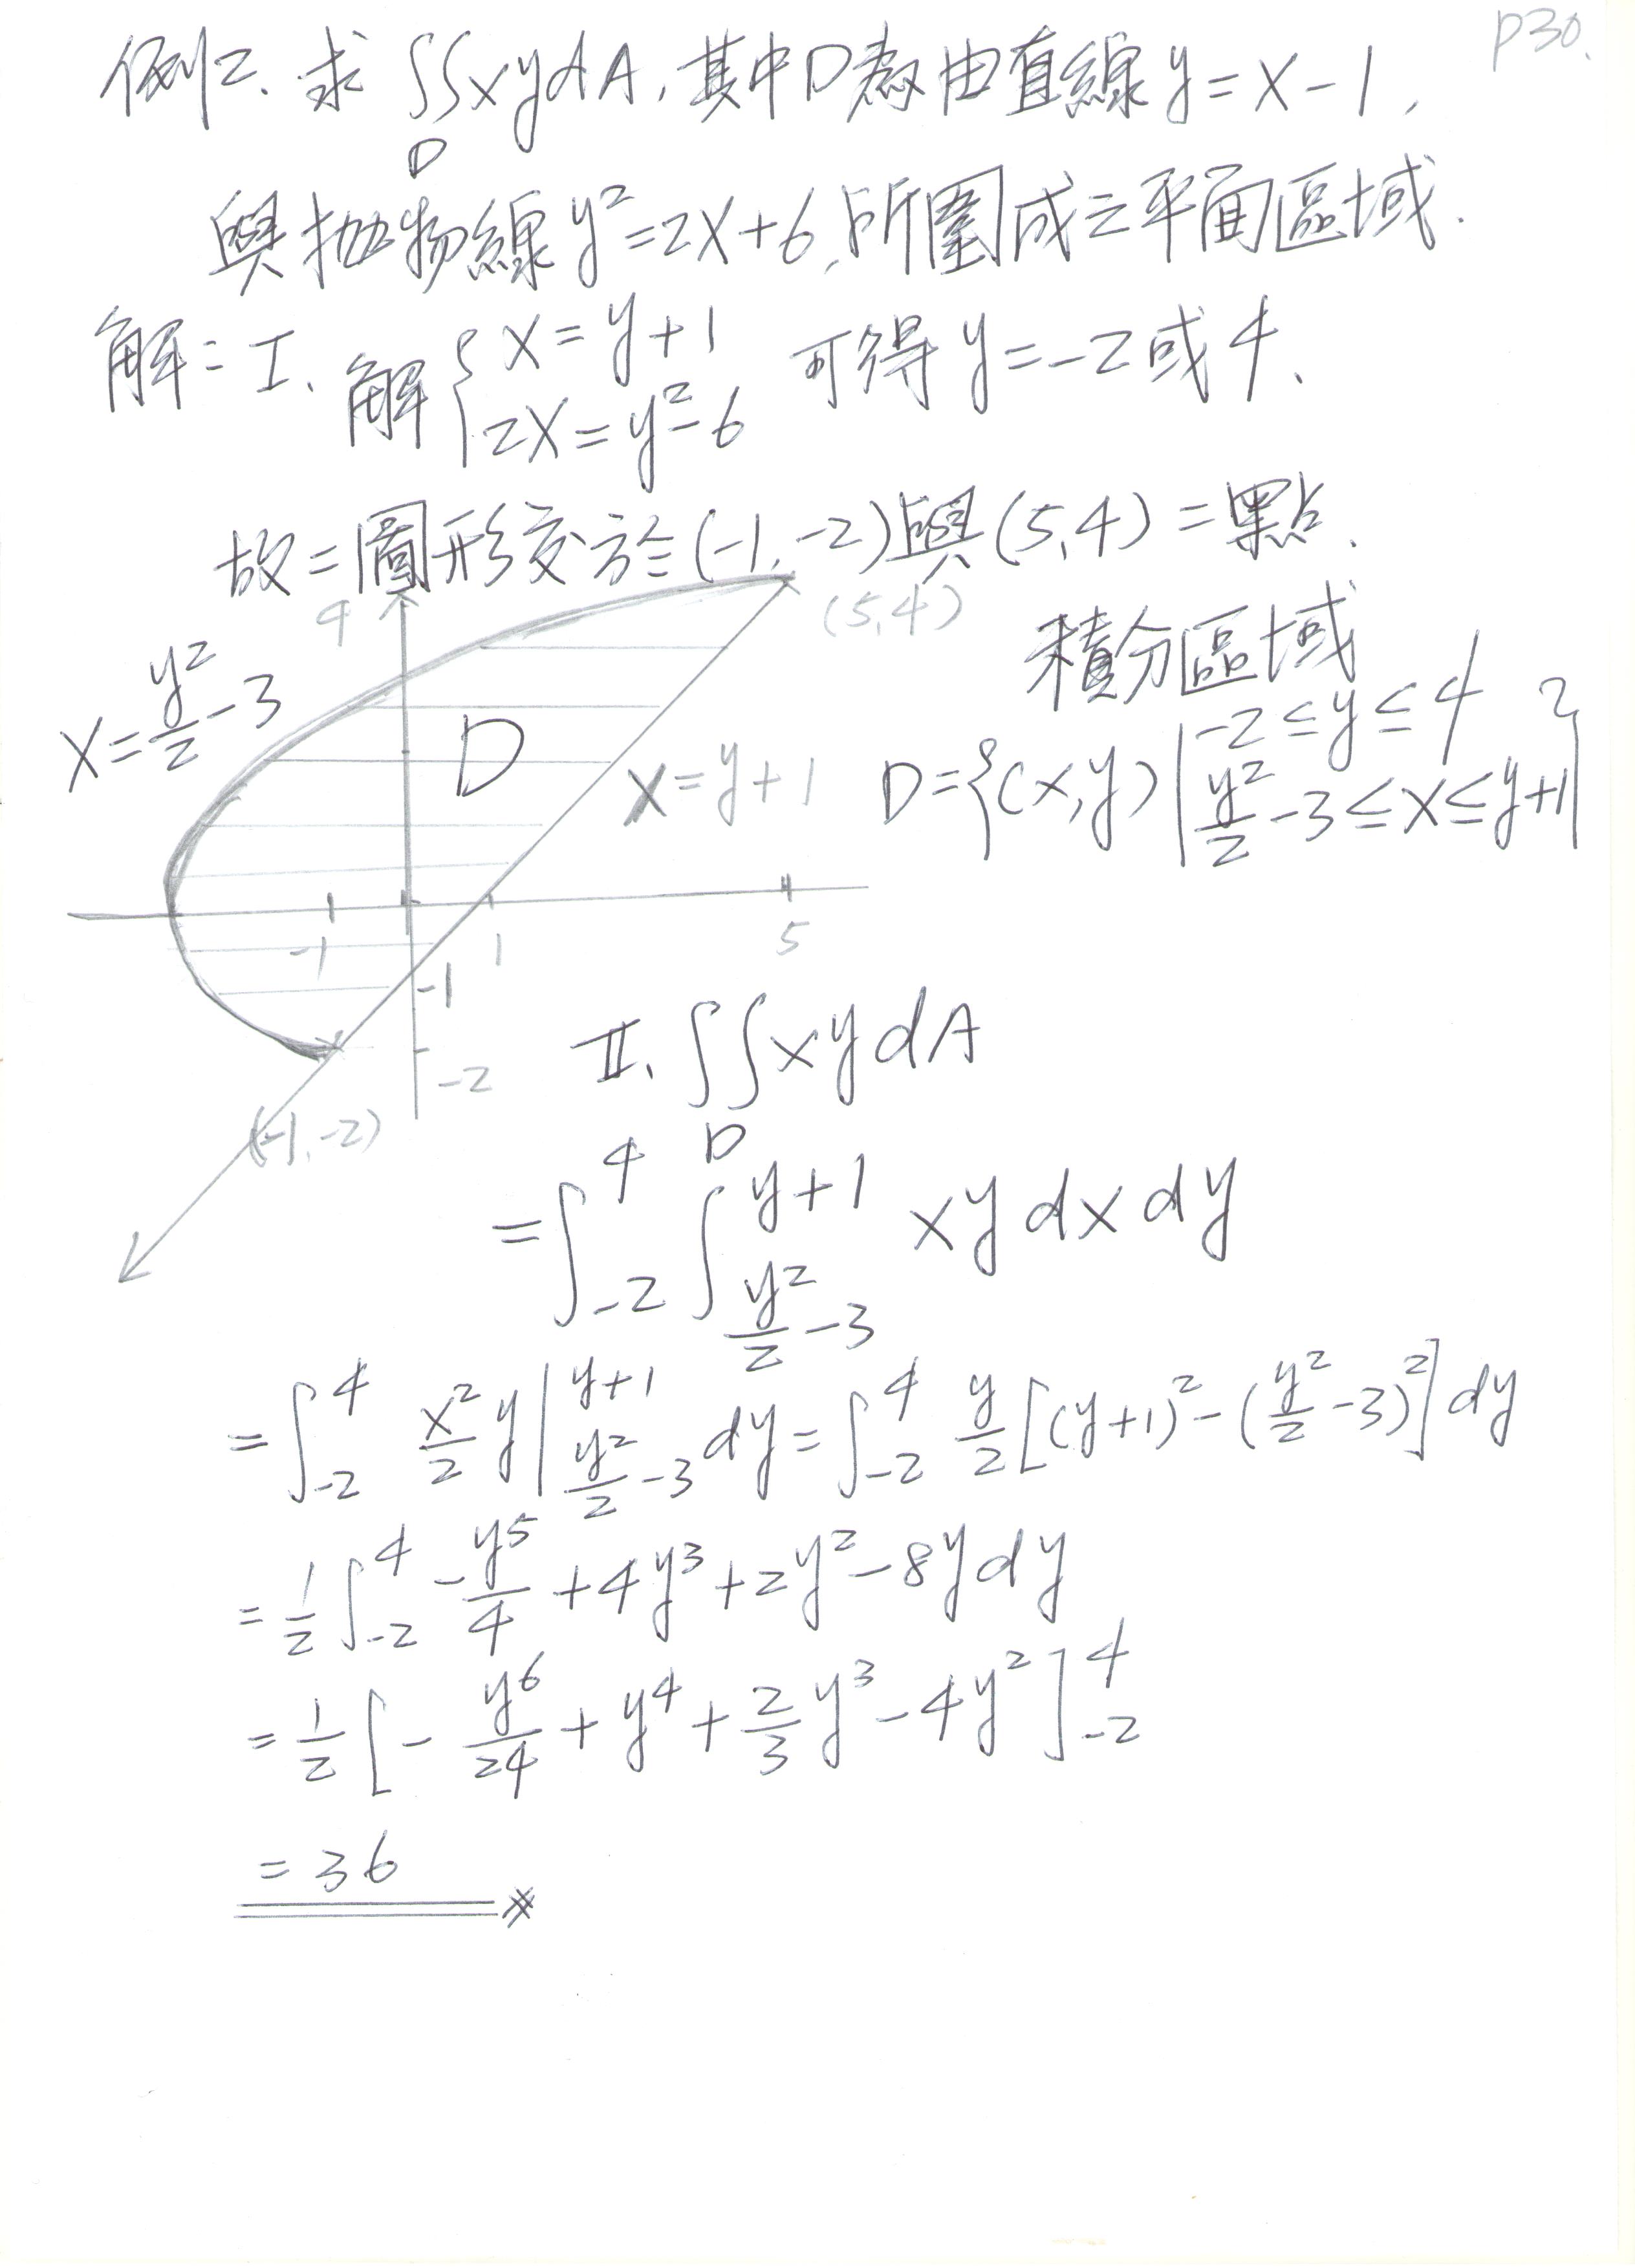 P30.
例2. 求 ∬_D xydA, 其中D為由直線 y=x-1,
與拋物線 y²=2x+6, 所圍成之平面區域.
解: I. 解 { x=y+1 可得 y=-2 或 4.
2x=y²-6
故二圖形交於(-1,-2)與(5,4)二點.
4
(5,4)
積分區域
x=y²/2-3
D
x=y+1
D={(x,y)| -2≤y≤4
y²/2-3≤x≤y+1}
-1
1
5
-1
-2
(-1,-2)
II. ∬_D xydA
=∫_{-2}^{4}∫_{y²/2-3}^{y+1} xy dx dy
=∫_{-2}^{4} x²/2 y|_{y²/2-3}^{y+1} dy=∫_{-2}^{4} y/2[(y+1)²-(y²/2-3)²]dy
=1/2∫_{-2}^{4} -y⁵/4+4y³+2y²-8ydy
=1/2[-y⁶/24+y⁴+2/3y³-4y²]_{-2}^{4}
=36 ※